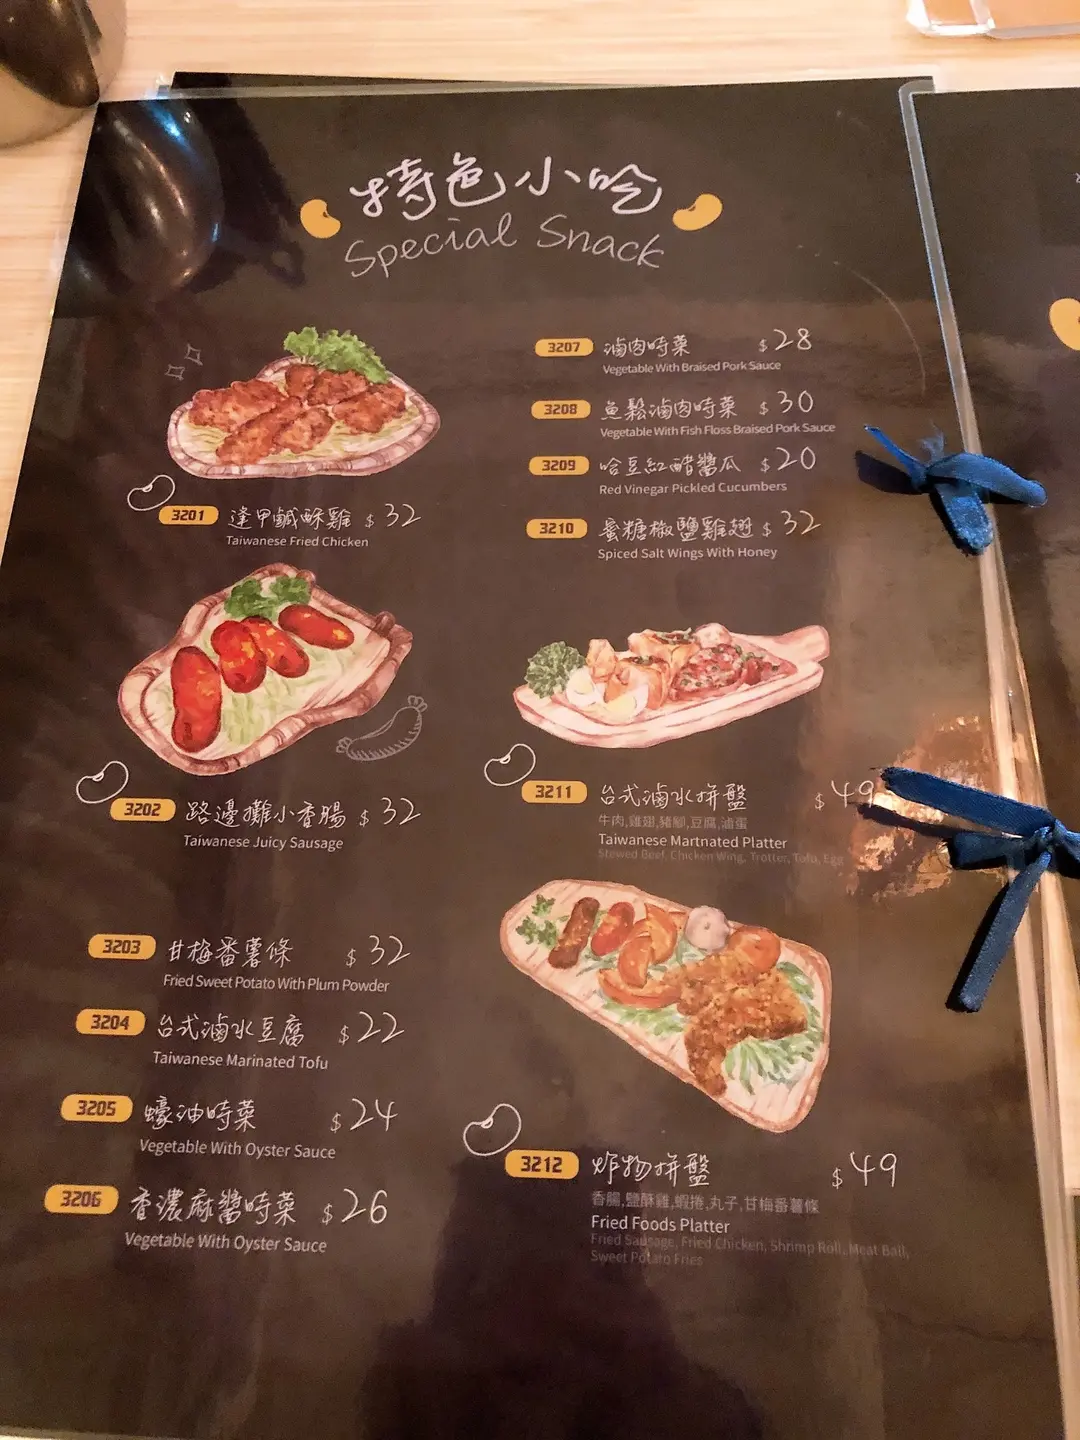 特色小吃
Special Snack
3201 逢甲鹹酥雞 $32
Taiwanese Fried Chicken
3202 路邊攤小香腸 $32
Taiwanese Juicy Sausage
3203 甘梅番薯條 $32
Fried Sweet Potato With Plum Powder
3204 台式滷水豆腐 $22
Taiwanese Marinated Tofu
3205 蠔油時菜 $24
Vegetable With Oyster Sauce
3206 香濃麻醬時菜 $26
Vegetable With Oyster Sauce
3207 滷肉時菜 $28
Vegetable With Braised Pork Sauce
3208 魚鬆滷肉時菜 $30
Vegetable With Fish Floss Braised Pork Sauce
3209 哈豆紅醋醬瓜 $20
Red Vinegar Pickled Cucumbers
3210 蜜糖椒鹽雞翅 $32
Spiced Salt Wings With Honey
3211 台式滷水拼盤 $49
牛肉,雞翅,豬腳,豆腐,滷蛋
Taiwanese Martnated Platter
Stewed Beef, Chicken Wing, Trotter, Tofu, Egg
3212 炸物拼盤 $49
香腸,鹽酥雞,蝦捲,丸子,甘梅番薯條
Fried Foods Platter
Fried Sausage, Fried Chicken, Shrimp Roll, Meat Ball,
Sweet Potato Fries